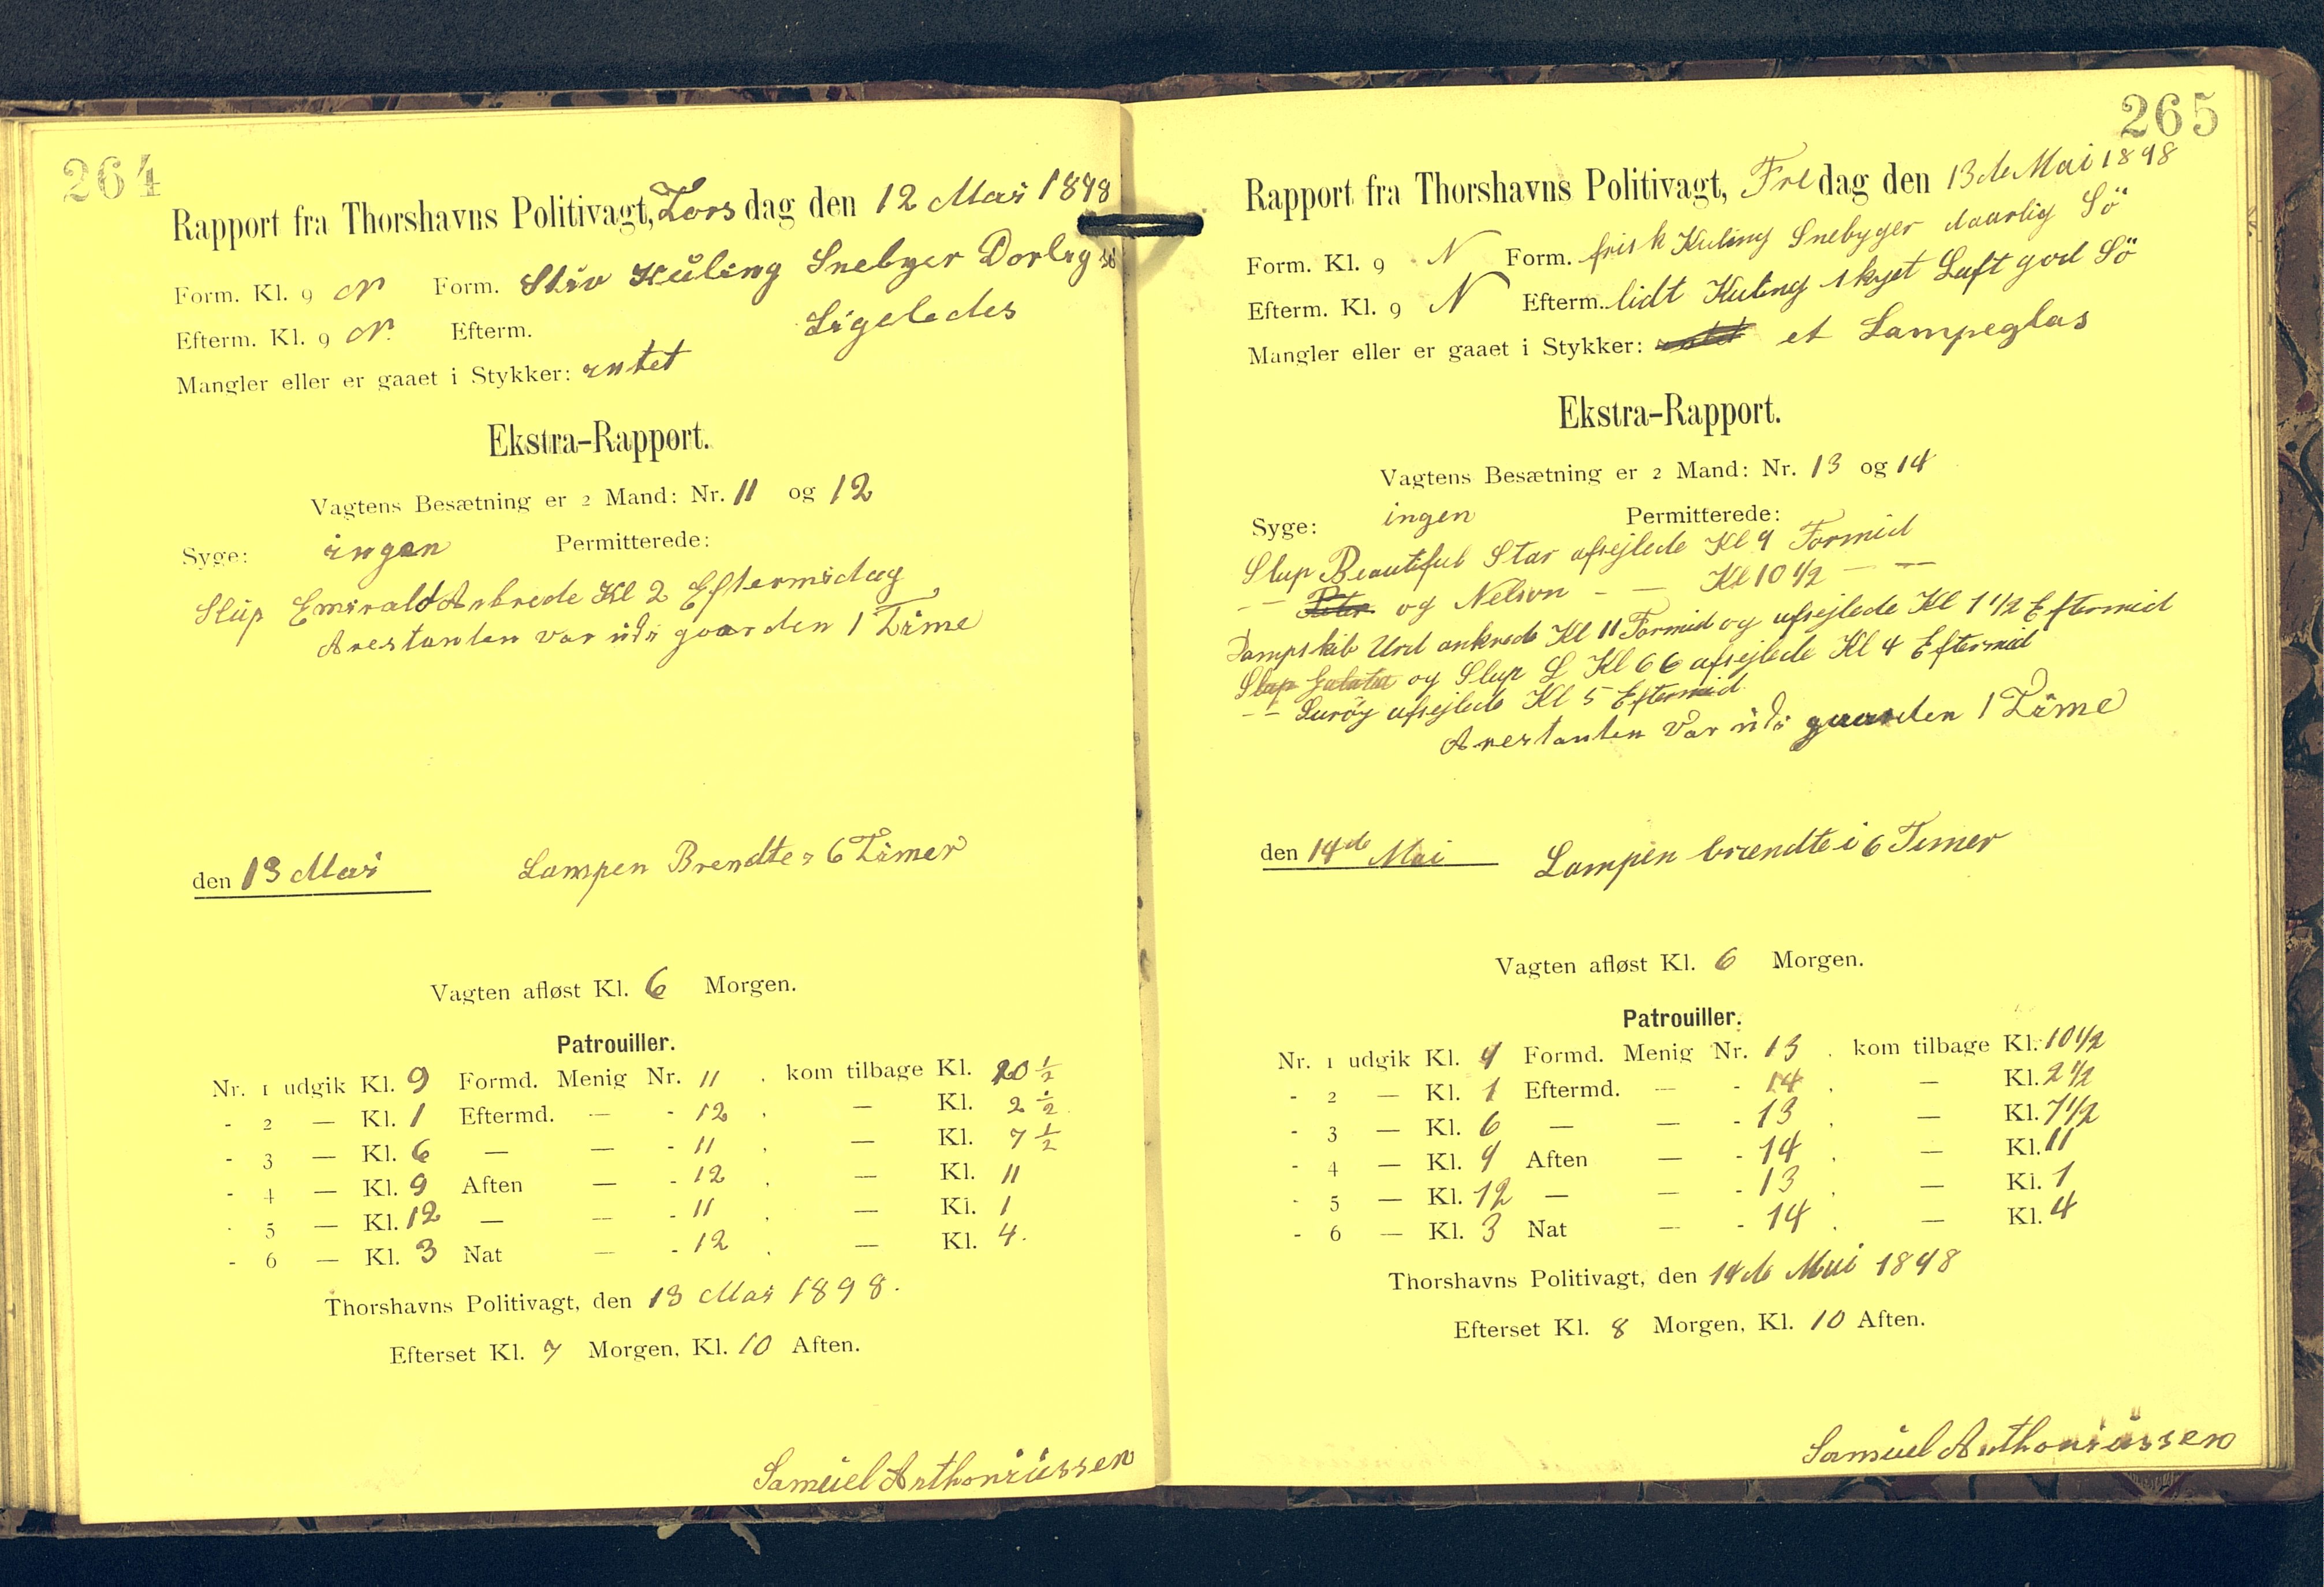 264
Rapport fra Thorshavns Politivagt, Torsdag den 12 Mai 1898
Form. Kl. 9 N Form. Stiv Kuling Snebyer Dorlig Sö
Efterm. Kl. 9 N. Efterm. Ligeledes
Mangler eller er gaaet i Stykker: intet
Ekstra-Rapport.
Vagtens Besætning er 2 Mand: Nr. 11 og 12
Syge: ingen Permitterede:
Slup Emirald Ankrede Kl 2 Eftermidag
Arestanten var udi gaarden 1 Time
den 13 Mai Lampen Brendte i 6 Timer
Vagten afløst Kl. 6 Morgen.
Patrouiller.
Nr. 1 udgik Kl. 9 Formd. Menig Nr. 11 . kom tilbage Kl. 10 1/2
- 2 — Kl. 1 Eftermd. — - 12 . — Kl. 2 1/2
- 3 — Kl. 6 — — - 11 . — Kl. 7 1/2
- 4 — Kl. 9 Aften — - 12 . — Kl. 11
- 5 — Kl. 12 — — - 11 . — Kl. 1
- 6 — Kl. 3 Nat — - 12 . — Kl. 4.
Thorshavns Politivagt, den 13 Mai 1898.
Efterset Kl. 7 Morgen, Kl. 10 Aften.
Samuel Anthoniussen
265
Rapport fra Thorshavns Politivagt, Fredag den 13de Mai 1898
Form. Kl. 9 N Form. frisk Kuling Snebyger daarlig Sö
Efterm. Kl. 9 N Efterm. lidt Kuling skyet Luft god Sö
Mangler eller er gaaet i Stykker: et Lampeglas
Ekstra-Rapport.
Vagtens Besætning er 2 Mand: Nr. 13 og 14
Syge: ingen Permitterede:
Slup Beautiful Star afsejlede Kl 9 Formid
-- og Nelson - — Kl 10 1/2 — —
Dampskib Urd ankrede Kl 11 Formid og afsejlede Kl 1 1/2 Eftermid
Slup og Slup L Kl 66 afsejlede Kl 4 Eftermid
-- Suröy afsejlede Kl 5 Eftermid.
Arestanten var udi gaarden 1 Time
den 14de Mai Lampen brændte i 6 Timer
Vagten afløst Kl. 6 Morgen.
Patrouiller.
Nr. 1 udgik Kl. 9 Formd. Menig Nr. 13 . kom tilbage Kl. 10 1/2
- 2 — Kl. 1 Eftermd. — - 14 . — Kl. 2 1/2
- 3 — Kl. 6 — — - 13 . — Kl. 7 1/2
- 4 — Kl. 9 Aften — - 14 . — Kl. 11
- 5 — Kl. 12 — — - 13 . — Kl. 1
- 6 — Kl. 3 Nat — - 14 . — Kl. 4
Thorshavns Politivagt, den 14de Mai 1898
Efterset Kl. 8 Morgen, Kl. 10 Aften.
Samuel Anthoniussen